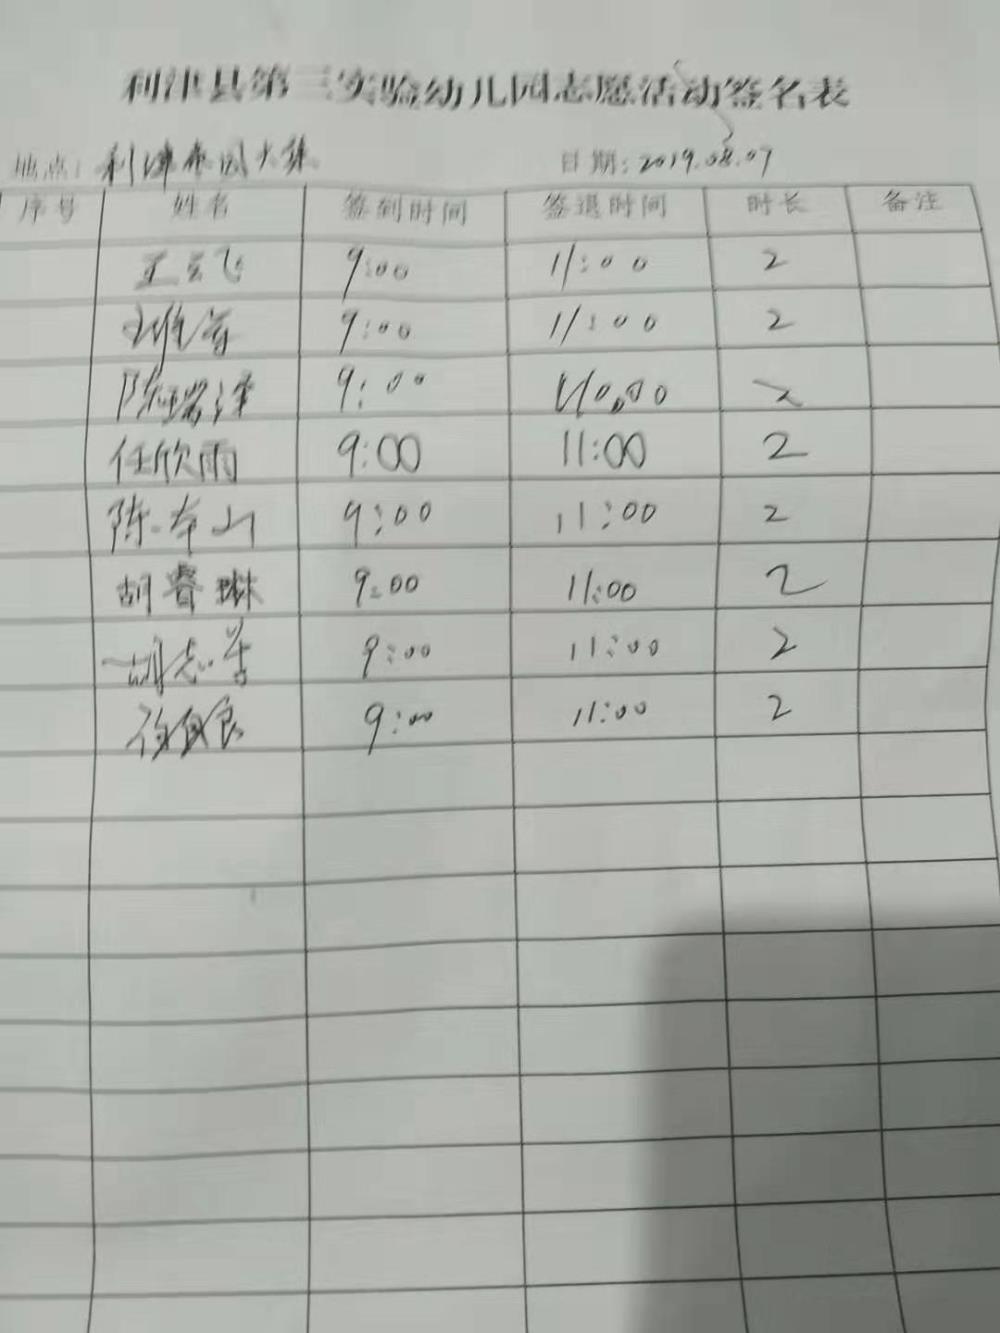 利津县第三实验幼儿园志愿活动签名表
地点: 利津 大集 日期: 2019.08.07
序号 姓名 签到时间 签退时间 时长 备注
王云飞 9:00 11:00 2
9:00 11:00 2
陈瑞泽 9:00 2
任欣雨 9:00 11:00 2
陈本山 9:00 11:00 2
胡睿琳 9:00 11:00 2
胡志 9:00 11:00 2
9:00 11:00 2